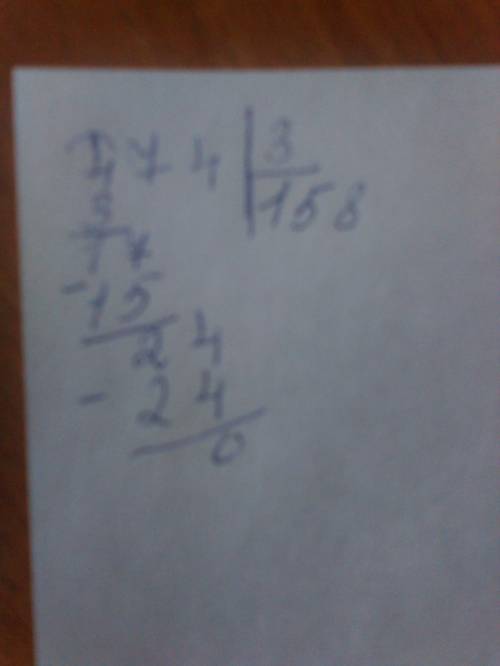 474 3
3 158
17
-15
24
- 24
0